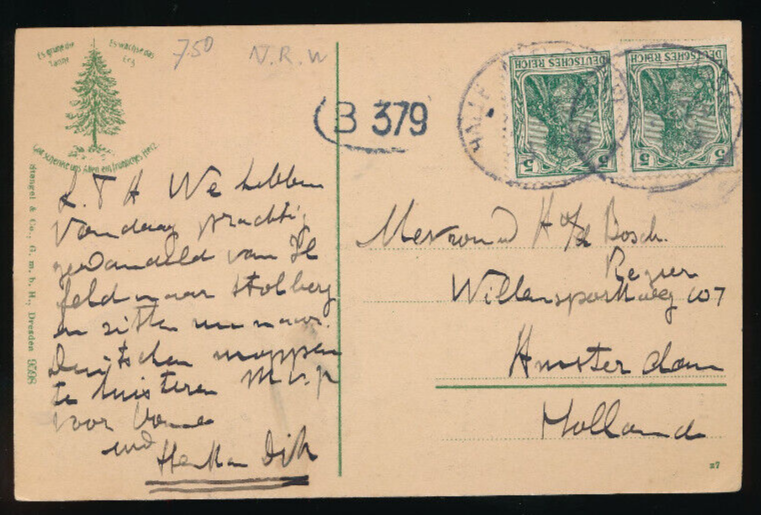 Es grüne die
Tanne
Es wachse das
Erz
Gott schenke uns Allen ein fröhliches Herz.
750
N.R.W
B 379
DEUTSCHES REICH
5
5
DEUTSCHES REICH
5
5
HALLE
L. T H We hebben
Vandaag prachtig
gewandeld van
feld naar Stolberg
en zitten nu naar
Duitschen moppen
te luisteren M v p
voor
Herman Dik
Mevrouw H v/d Bosch
Willemsparkweg 107
Amsterdam
Holland
Stengel & Co., G. m. b. H., Dresden
27